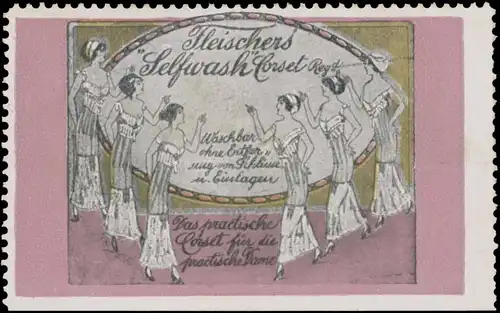 Fleischers
"Selfwash" Corset Regd
Waschbar
ohne Entfer„
nung von Schliesse
u. Einlagen
Das practische
Corset für die
practische Dame